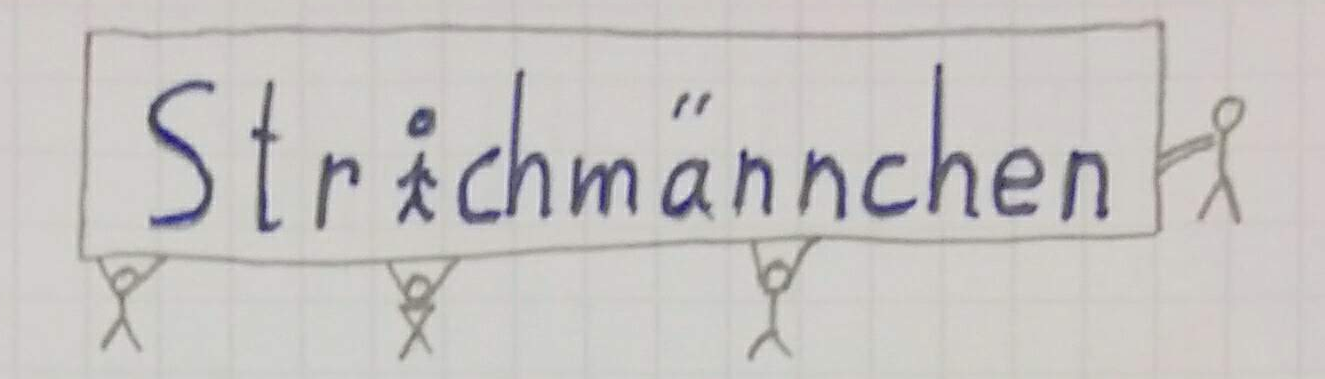 Strichmännchen